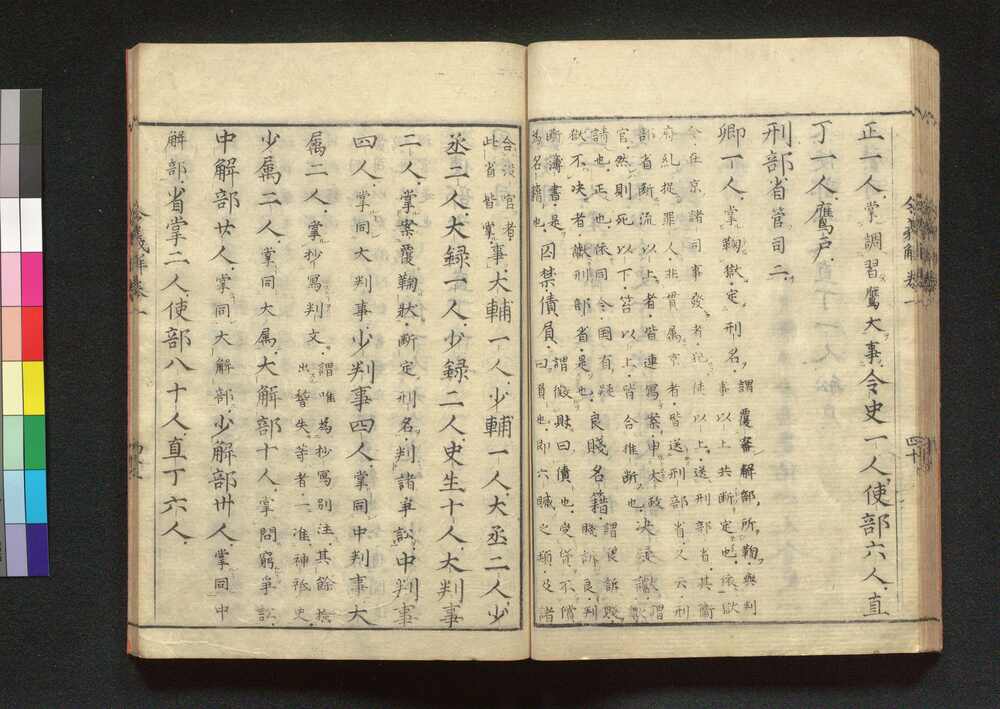 正一人。掌調習鷹犬事。令史一人。使部六人。直
丁一人。鷹戸。
刑部省管司二。
卿一人。掌鞫獄。定刑名。謂覆審解部所鞫與判
事以上共断定也。依獄
令在京諸司事發者。犯徒以上。送刑部省。其衛
府糺捉罪人。非貫属京者。皆送刑部省。又云。刑
部省断流以上者。皆連寫案。申太政
官。然則死以下。笞以上。皆合推断也。決疑讞。謂
請也。正也。依同令。国有疑
獄不決者。讞刑部省。是也。良賤名籍。謂良訴賤。
賤訴良。判
断簿書。是
為名籍也。囚禁。債負。謂假財曰債也。受貸不償
曰負也。即六贓之類及諸
合没官者。
此省皆掌。事。大輔一人。少輔一人。大丞二人。少
丞二人。大録一人。少録二人。史生十人。大判事
二人。掌案覆鞫状。断定刑名。判諸争訟。中判事
四人。掌同大判事。少判事四人。掌同中判事。大
属二人。掌抄寫判文。謂唯為抄寫別注。其餘檢
出稽失等者。一准神祇史。
少属二人。掌同大属。大解部十人。掌問窮争訟。
中解部廿人。掌同大解部。少解部卅人。掌同中
解部。省掌二人。使部八十人。直丁六人。
令義解巻一
四十
令義解巻一